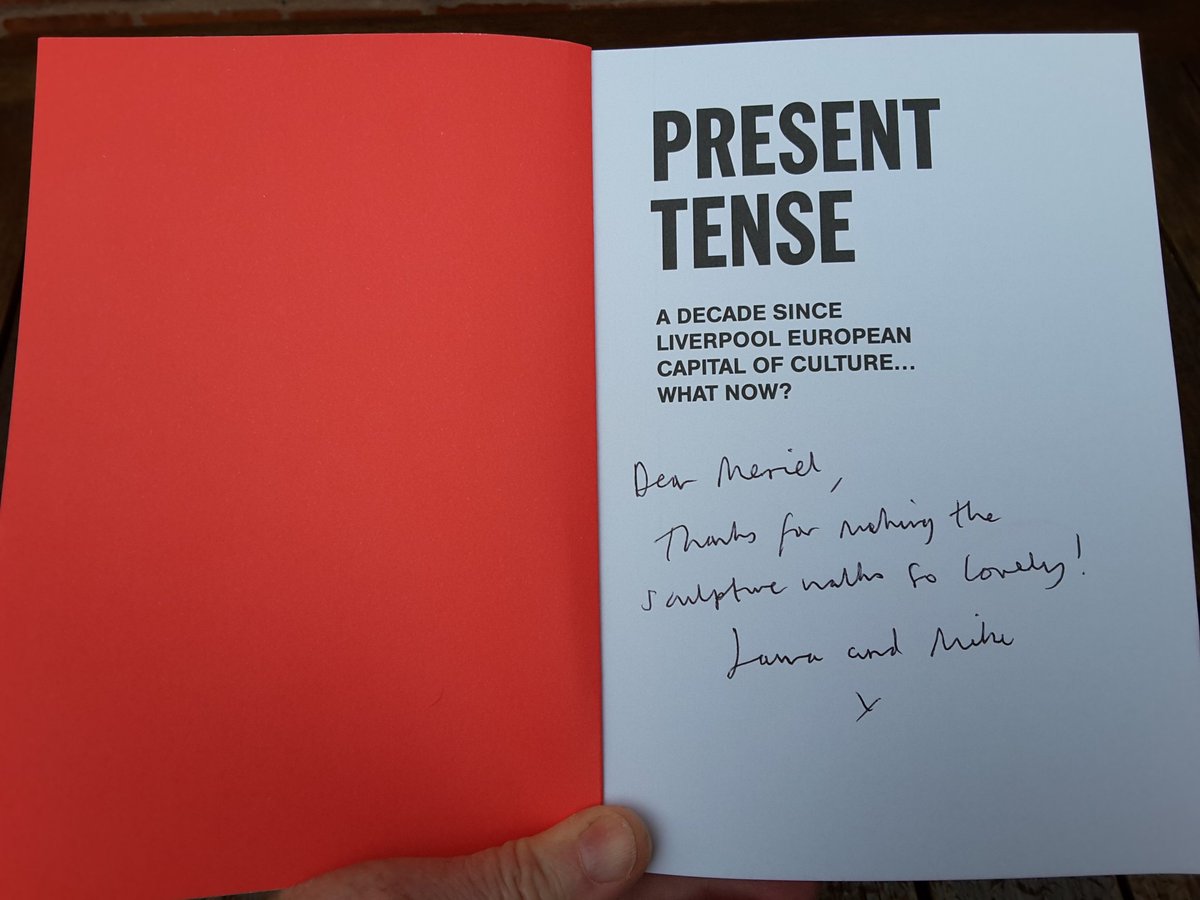 PRESENT
TENSE
A DECADE SINCE
LIVERPOOL EUROPEAN
CAPITAL OF CULTURE...
WHAT NOW?
Dear Meriel,
Thanks for making the
sculpture walks so lovely!
Laura and Mike
x